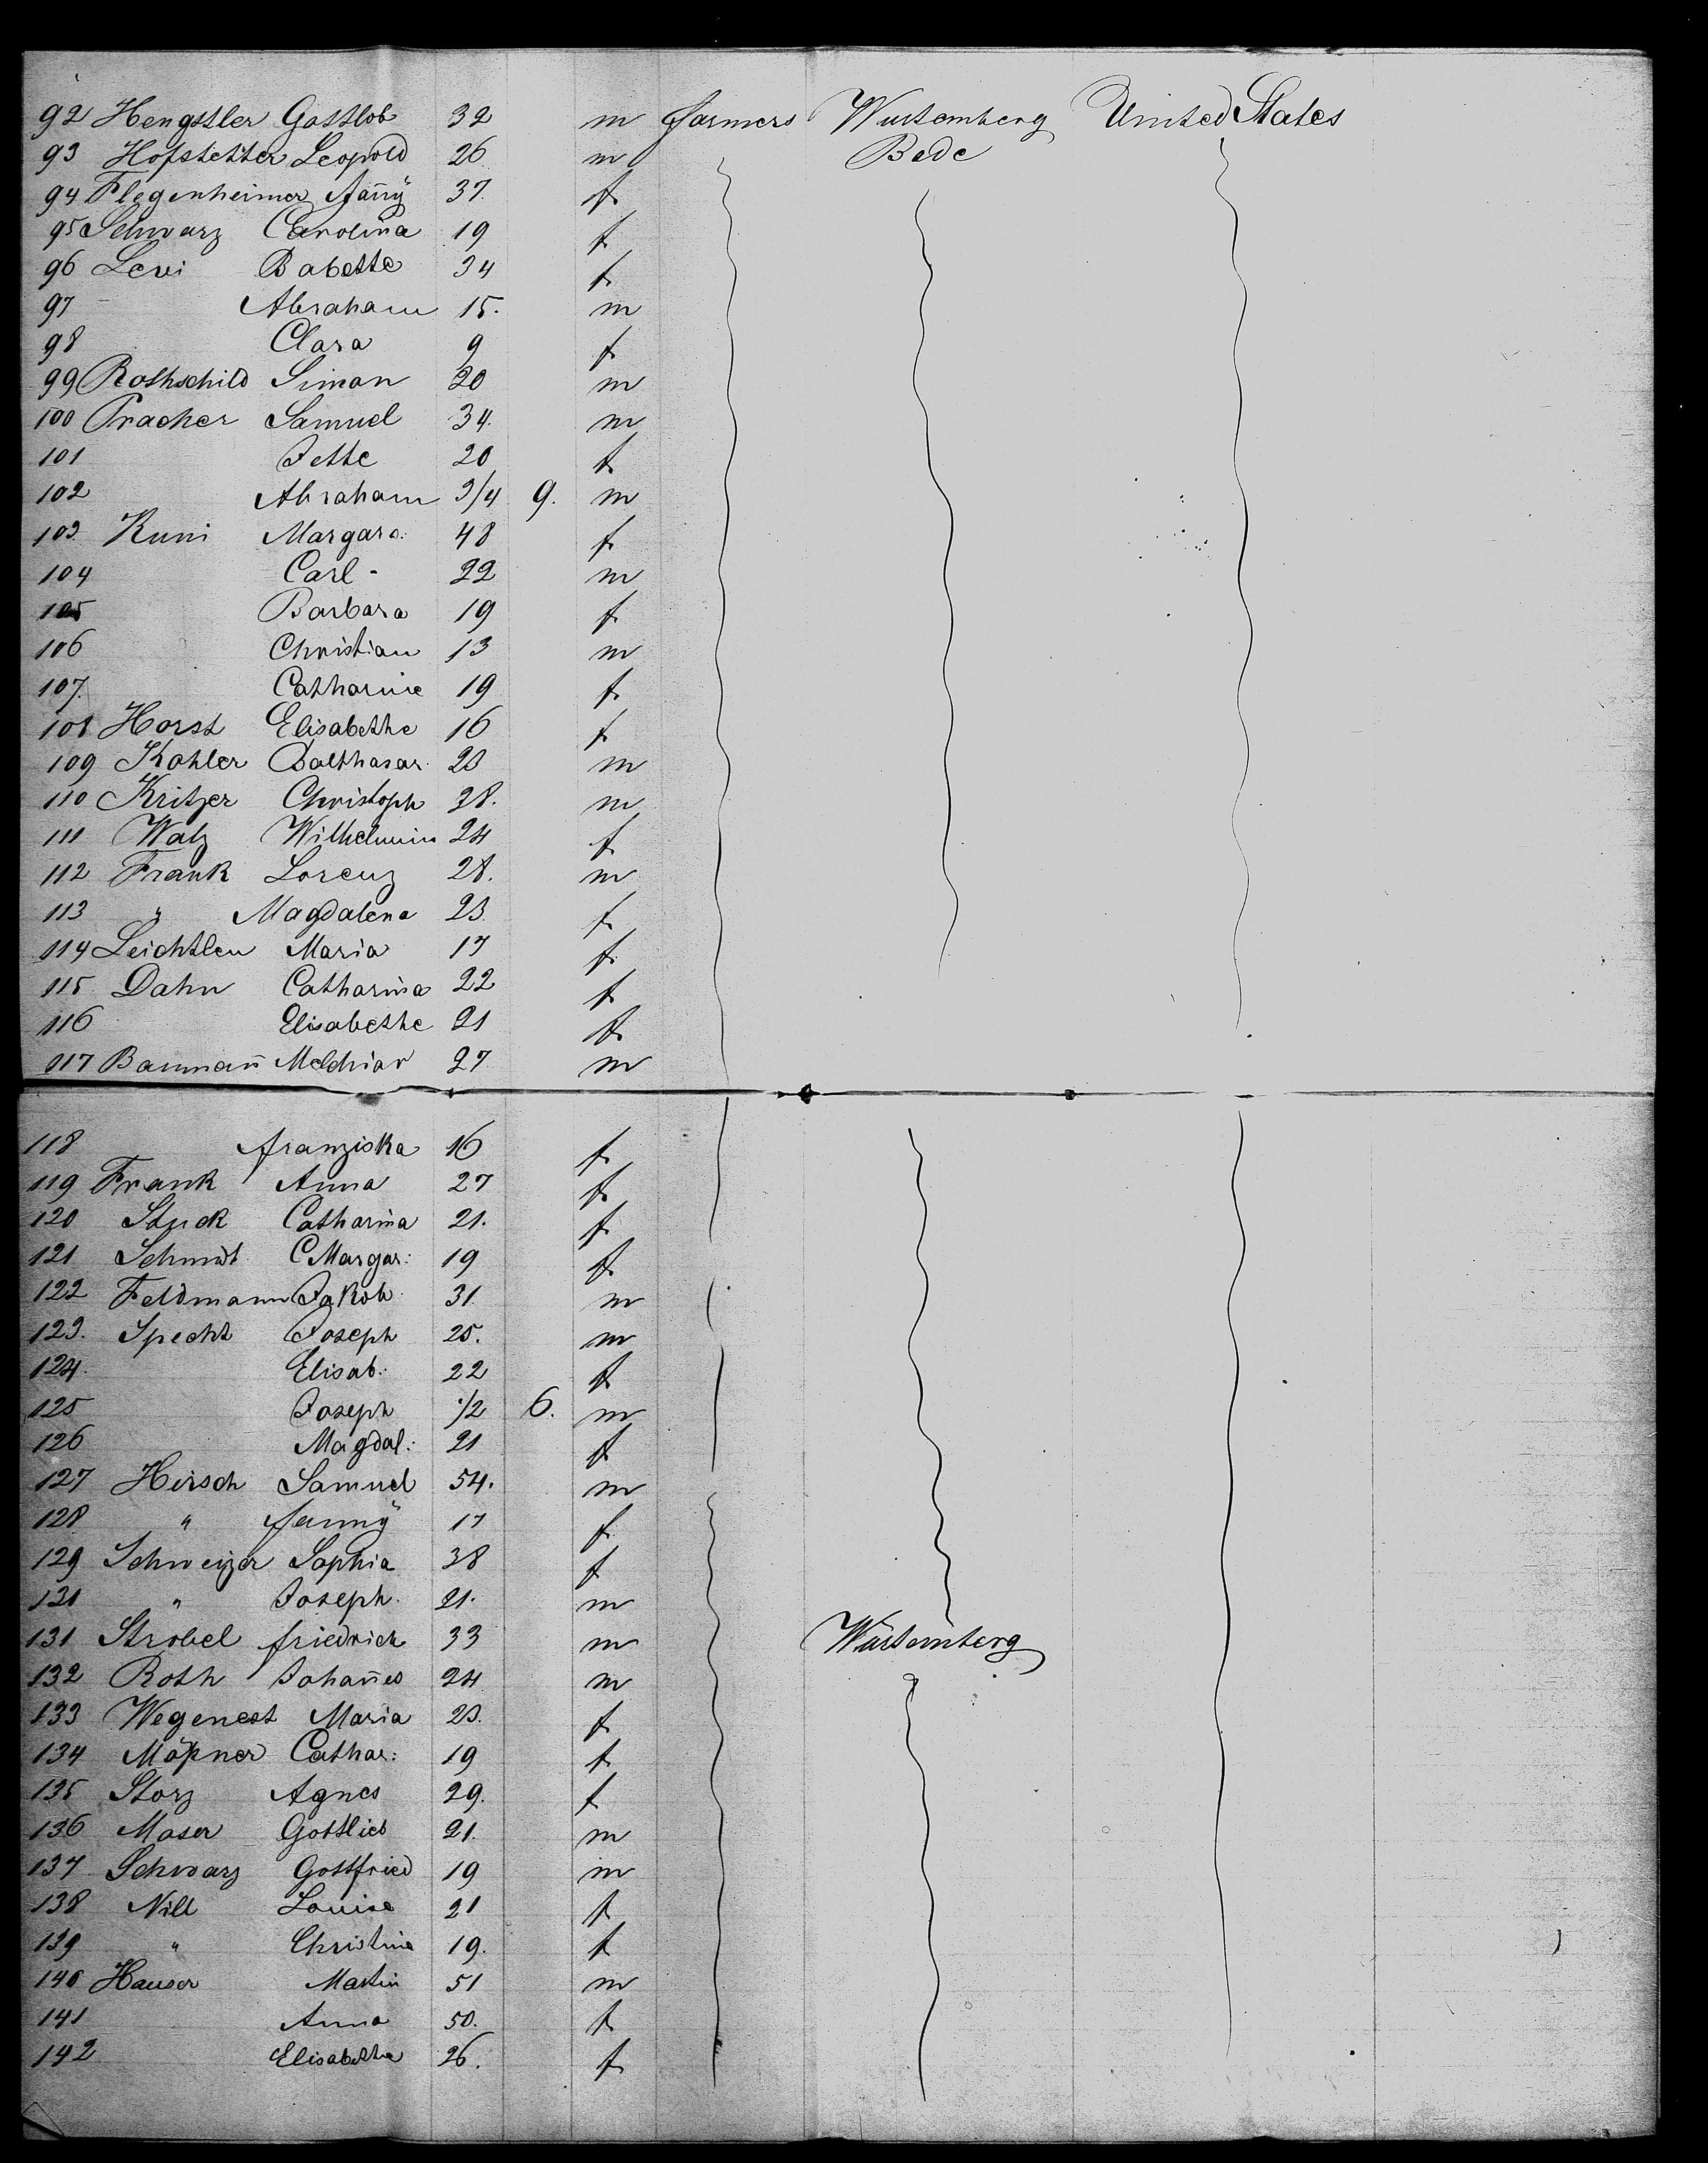 92 Hengstler Gottlob 32 m farmers Wurtemberg United States
93 Hofstetter Leopold 26 m Bade
94 Flegenheimer Fañÿ 37. f
95 Schwarz Carolina 19 f
96 Levi Babette 34 f
97 Abraham 15. m
98 Clara 9 f
99 Rothschild Simon 20 m
100 Pracher Samuel 34. m
101 Jette 20 f
102 Abraham 3/4 9. m
103. Kuni Margara: 48 f
104 Carl - 22 m
105 Barbara 19 f
106 Christian 13 m
107. Catharine 19 f
108 Horst Elisabethe 16 f
109 Kohler Balthasar. 23 m
110 Kritzer Christoph 38. m
111 Walz Wilhelmin 24 f
112 Frank Lorenz 28. m
113 " Magdalena 23. f
114 Leichtlen Maria 17 f
115 Dahn Catharina 22 f
116 Elisabethe 21 f
117 Baumañ Melchiar 27 m
118 Franziska 16 f
119 Frank Anna 27 f
120 Stuck Catharina 21. f
121 Schmidt C Margar: 19 f
122 Feldmann Jakob 31. m
123. Specht Joseph 25. m
124. Elisab: 22 f
125 Joseph 1/2 6. m
126 Magdal: 21 f
127 Hirsch Samuel 54. m
128 " Fannÿ 17 f
129 Schweizer Sophia 38 f
131 " Joseph. 21. m
131 Strobel Friedrich 33 m Würtemberg
132 Roth Johañes 24 m
133 Wegenest Maria 23. f
134 Cathar: 19 f
135 Storz Agnes 29. f
136 Moser Gottlieb 21. m
137 Schwarz Gottfried 19 m
138 Nill Louise 21 f
139 " Christine 19. f
140 Hauser Martin 51 m
141 Anna 50. f
142 Elisabetha 26. f